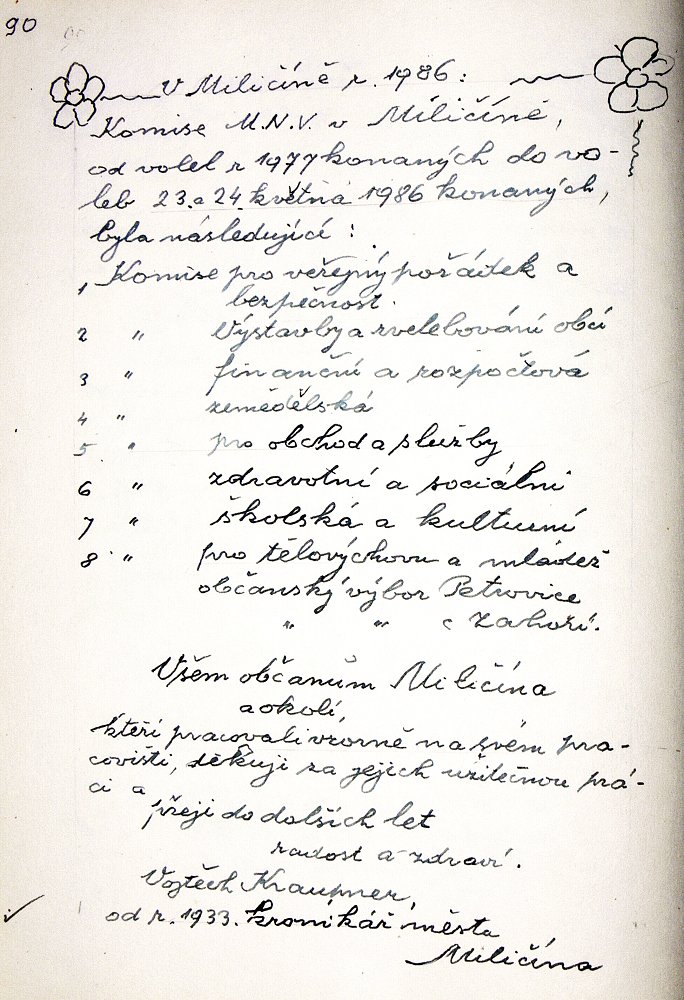 90
V Miličíně r. 1986:
Komise M.N.V. v Miličíně,
od voleb r 1977 konaných do vo-
leb 23. a 24 května 1986 konaných,
byla následující:
1 Komise pro veřejný pořádek a
bezpečnost.
2 " Výstavby a zvelebování obcí
3 " finanční a rozpočtová
4 " zemědělská
5 " pro obchod a služby
6 " zdravotní a sociálni
7 " školská a kulturní
8 " pro tělovýchovu a mládež
občanský výbor Petrovice
" " Záhoří.
Všem občanům Miličína
a okolí,
kteří pracovali vzorně na svém pra-
covišti, děkuji za jejich užitečnou prá-
ci a
přeji do dalších let
radost a zdraví.
Vojtěch Kraupner,
od r. 1933. kronikář města
Miličína